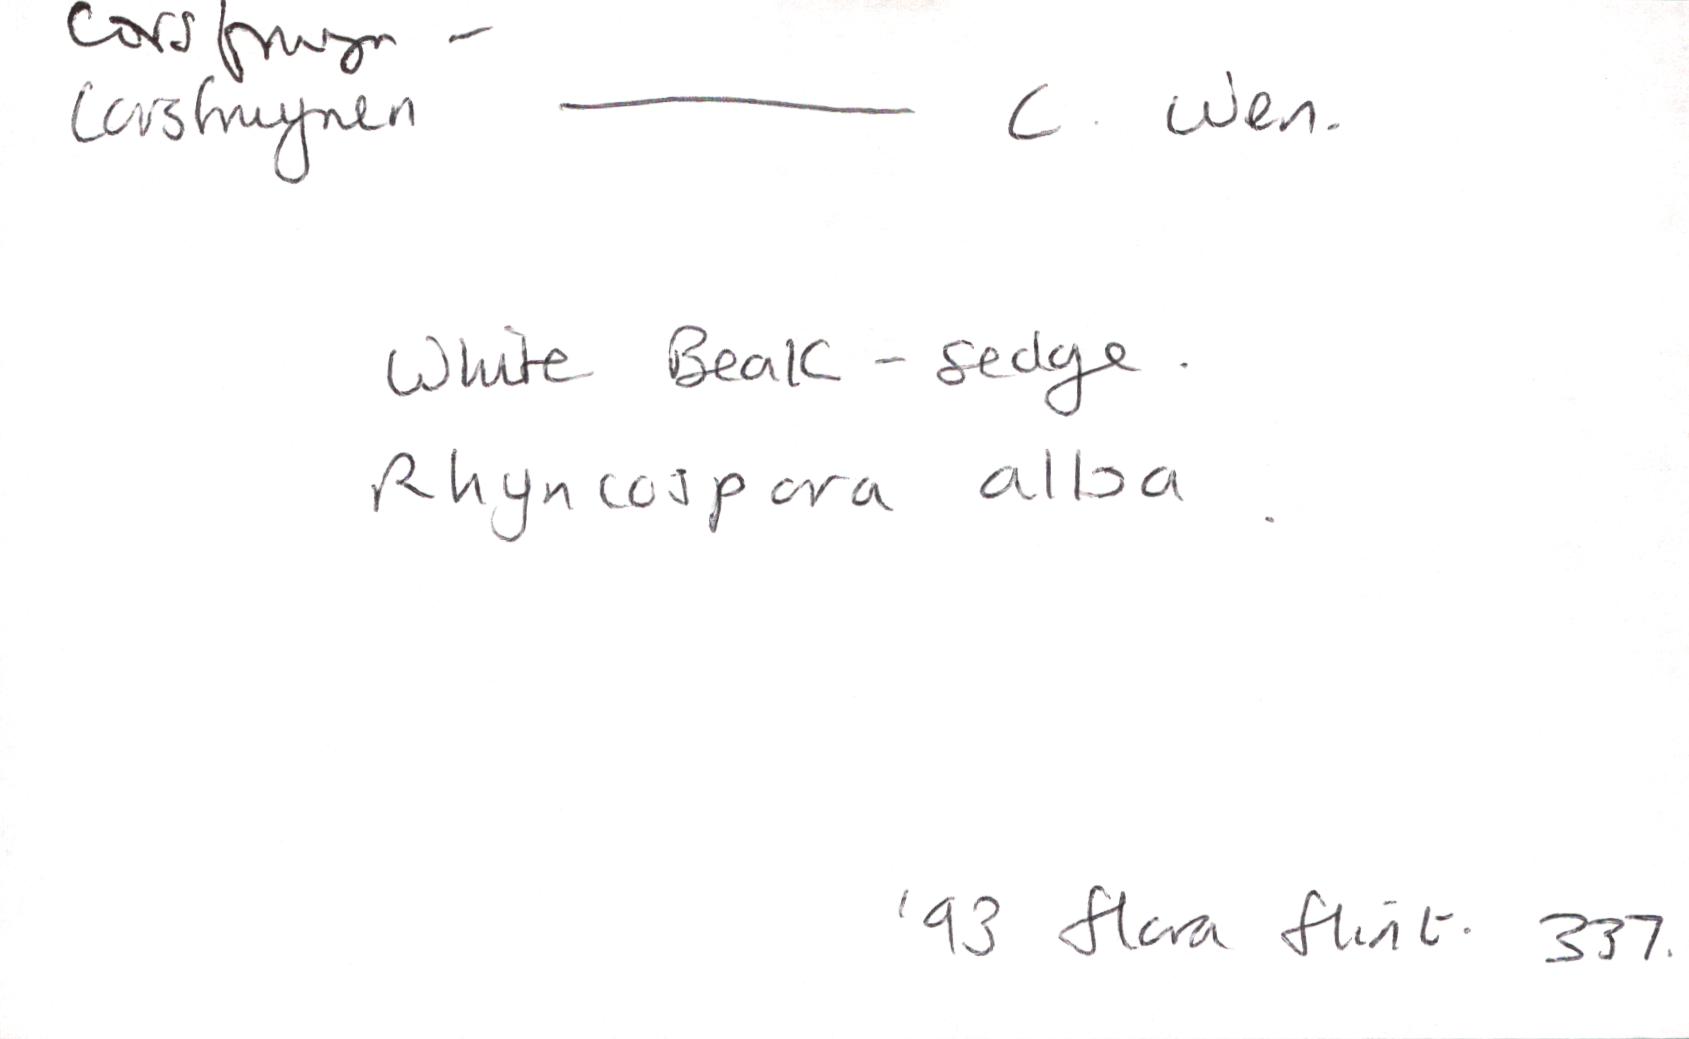 Corsfrwyn -
Corsfrwynen — C. Wen.
White Beak - sedge.
Rhyncospora alba.
'93 flora flint. 337.